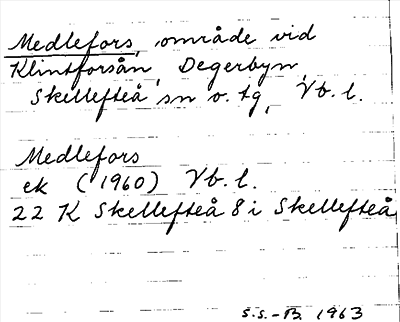 Medlefors, område vid
Klintforsån, Degerbyn,
Skellefteå sn o. tg, Vb. l.
Medlefors
ek (1960) Vb. l.
22 K Skellefteå 8 i Skellefteå
S.S.-B. 1963